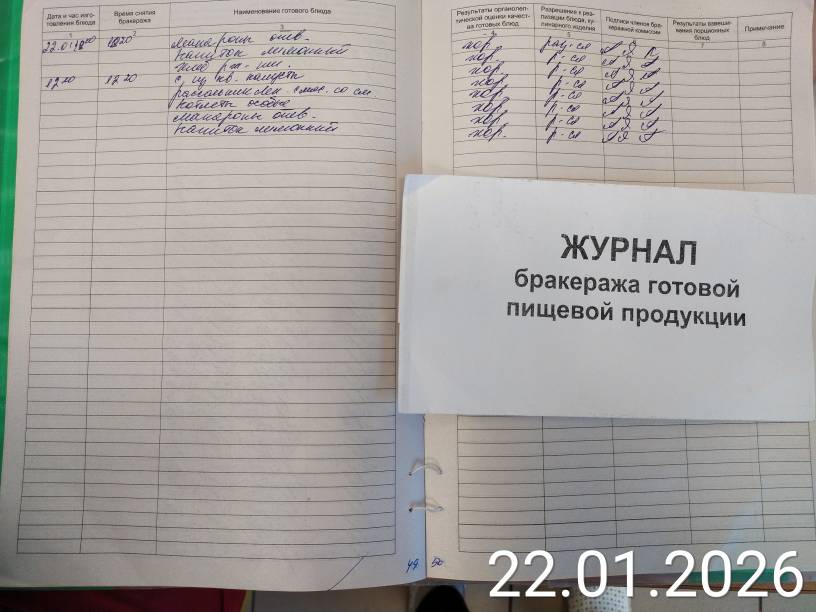 Дата и час изго-
товления блюда
Время снятия
бракеража
Наименование готового блюда
1
2
3
22.01 10 00
10 20
Макароны отв.
Напиток лимонный
Хлеб рж-пш.
12 00
12 20
С. из кв. капусты
рассольник лен. с мяс. со см
Котлеты особые
Макароны отв.
Напиток лимонный
49
Результаты органолеп-
тической оценки качест-
ва готовых блюд
Разрешение к реа-
лизации блюда, ку-
линарного изделия
Подписи членов бра-
керажной комиссии
Результаты взвеши-
вания порционных
блюд
Примечание
4
5
7
8
хор. раз-ся
хор. р-ся
хор р-ся
хор р-ся
хор. р-ся
хор. р-ся
хор. р-ся
хор. р-ся
50
ЖУРНАЛ
бракеража готовой
пищевой продукции
22.01.2026